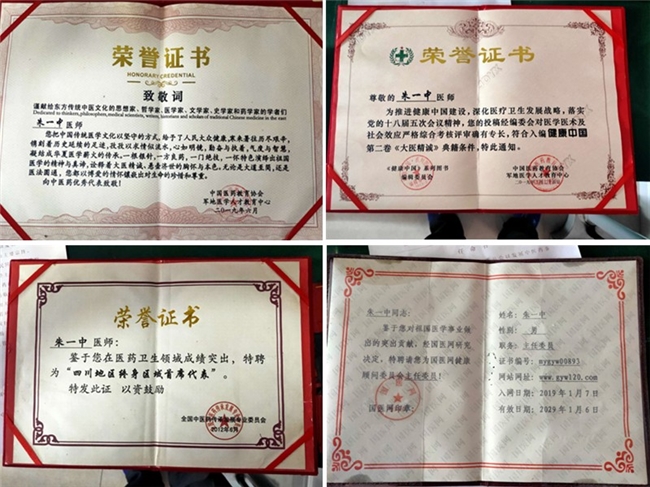 荣誉证书
HONORARY CREDENTIAL
致敬词
谨献给东方传统中医文化的思想家、哲学家、医学家、文学家、史学家和药学家的学者们
Dedicated to thinkers, philosophers, medical scientists, writers, historians and scholars of traditional Chinese medicine in the east
朱一中 医师
您把中国传统医学文化以坚守的方式,给予了人民大众健康,秉承着
都以博爱的情怀献敬出对生命的珍惜和尊重。
向中医药优秀代表致敬!
中国医药教育协会
军地医学人才教育中心
二〇一九年六月
荣誉证书
尊敬的 朱一中 医师
为推进健康中国建设,深化医疗卫生发展战略,落实
党的十八届五次会议精神,您的投稿经编委会对医学医术及
社会效应严格综合考核评审确有专长,符合入编健康中国
第二卷《大医精诚》典籍条件,特此通知。
《健康中国》系列图书
编辑委员会
中国医药教育协会
军地医学人才教育中心
荣誉证书
朱一中 医师:
鉴于您在医药卫生领域成绩突出,特聘
为“四川地区终身区域首席代表”。
特发此证 以资鼓励
2012年8月
朱一中同志:
鉴于您对祖国医学事业做
出的突出贡献,经国医网研究
决定,特聘请您为国医网健康
顾问委员会主任委员!
国医网印章:
姓名: 朱一中
性别: 男
职务: 主任委员
证书编号: wygyw00893
网站网址: www.gyw120.com
入网日期: 2019年1月7日
有效日期: 2029年1月6日